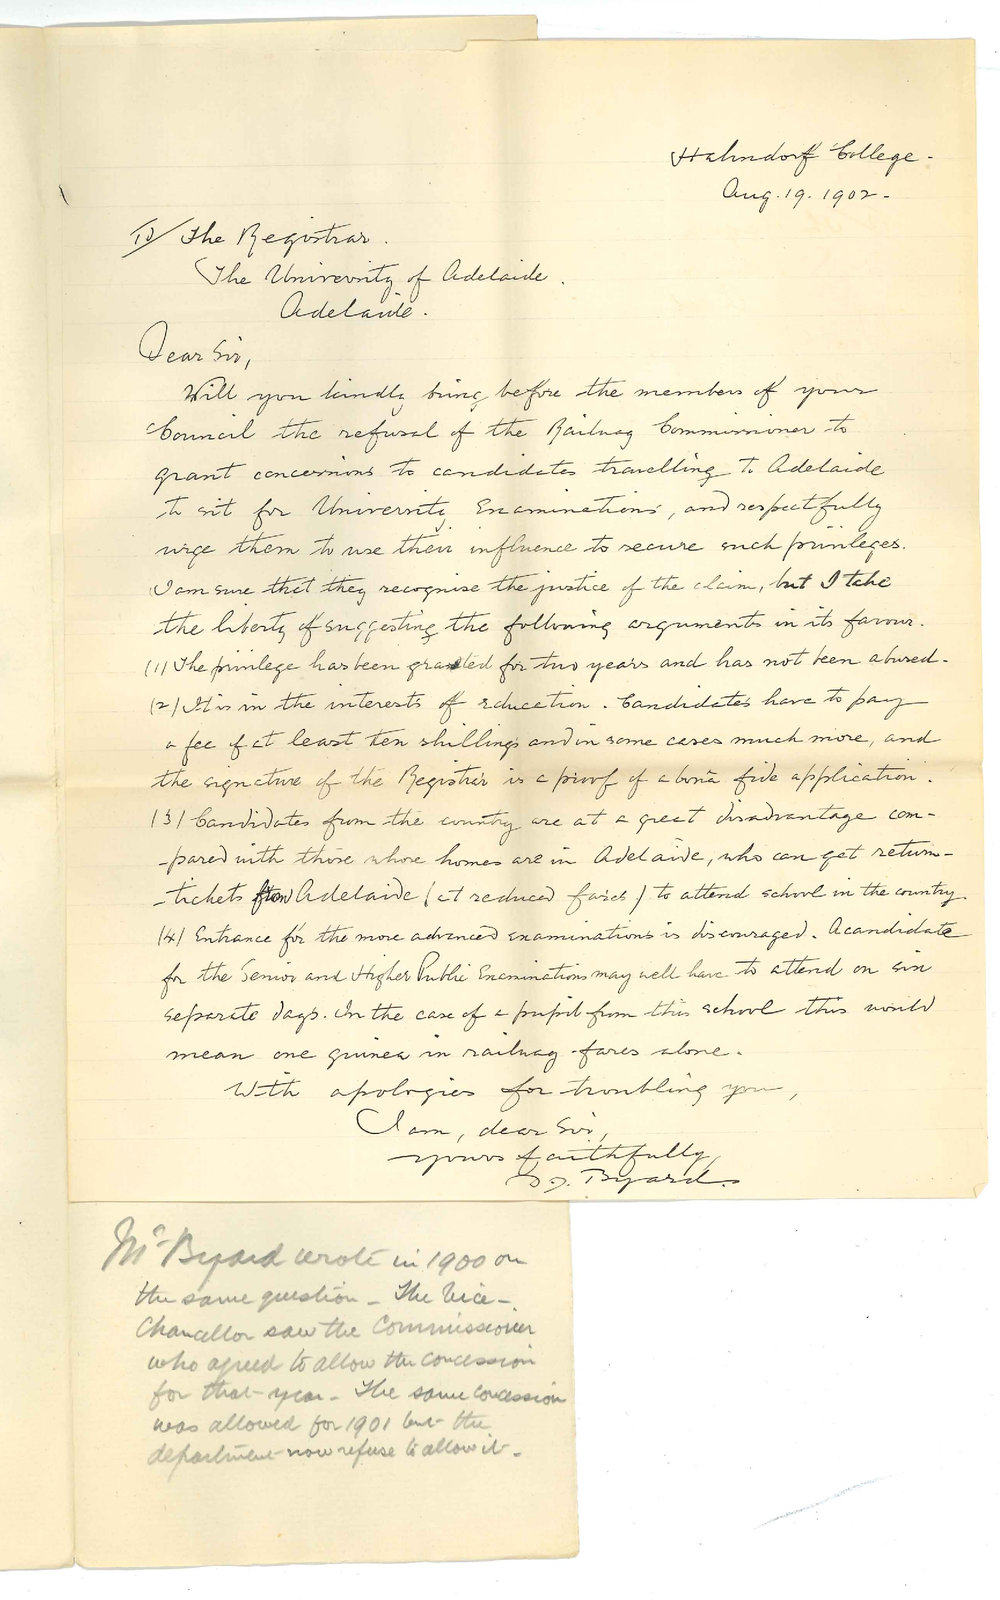 Hahndorf College -
Aug. 19. 1902 -
To/ The Registrar.
The University of Adelaide.
Adelaide.
Dear Sir,
Will you kindly bring before the members of your
Council the refusal of the Railway Commissioner to
grant concessions to candidates travelling to Adelaide
to sit for University Examinations, and respectfully
urge them to use their influence to secure such privileges.
I am sure that they recognise the justice of the claim, but I take
the liberty of suggesting the following arguments in its favour.
(1) The privilege has been granted for two years and has not been abused.
(2) It is in the interests of education. Candidates have to pay
a fee of at least ten shillings and in some cases much more, and
the signature of the Registrar is a proof of a bona fide application.
(3) Candidates from the country are at a great disadvantage com-
-pared with those whose homes are in Adelaide, who can get return-
-tickets from Adelaide (at reduced fares) to attend school in the country
(4) Entrance for the more advanced examinations is discouraged. A candidate
for the Senior and Higher Public Examinations may well have to attend on six
separate days. In the case of a pupil from this school this would
mean one guinea in railway fares alone.
With apologies for troubling you,
I am, dear Sir,
yours faithfully,
D. J. Byard.
Mr Byard wrote in 1900 on
the same question - The Vice-
Chancellor saw the Commissioner
who agreed to allow the concession
for that year - The same concession
was allowed for 1901 but the
department now refuse to allow it -